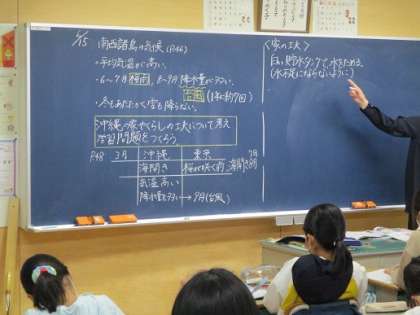 5/15 南西諸島の気候 (P.46)
・平均気温が高い。
・6～7月梅雨、8～9月降水量が多い。
台風 (1年に約7回)
・冬もあたたかく雪も降らない。
沖縄の家やくらしの工夫について考え
学習問題をつくろう
P.48 3月 沖縄 東京
海開き 桜がさく前 海開き 7月
気温高い
降水量も多い → 9月(台風)
〈家の工夫〉
白い貯水タンクで、水をためる。
(水不足にならないように)